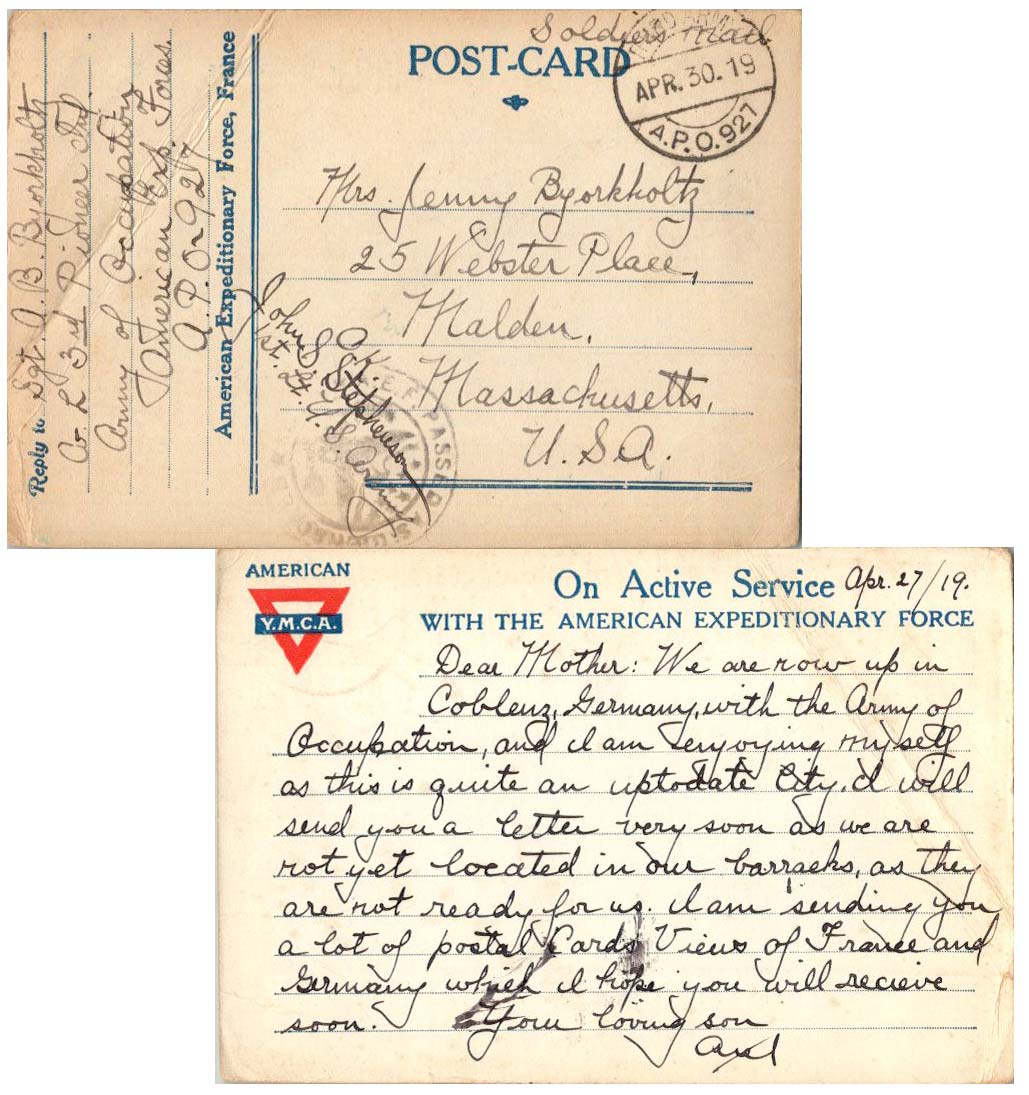 Soldiers Mail
POST-CARD
APR. 30. 19
A.P.O. 927
Reply to Sgt. A. B. Bjorkholtz
Co. L 3rd Pioneer Inf.
Army of Occupation
American Exp. Forces.
A.P.O-927
American Expeditionary Force, France
Mrs. Jenny Byorkholtz
25 Webster Place,
Malden,
Massachusetts,
U.S.A.
O.K.
John S. Stephenson
1st. Lt. U.S. Army
A.E.F. PASSED AS CENSORED
AMERICAN
Y.M.C.A.
On Active Service Apr. 27/19.
WITH THE AMERICAN EXPEDITIONARY FORCE
Dear Mother: We are now up in
Coblenz, Germany, with the Army of
Occupation, and I am enjoying myself
as this is quite an uptodate City. I will
send you a letter very soon as we are
not yet located in our barracks, as they
are not ready for us. I am sending you
a lot of postal Cards Views of France and
Germany which I hope you will recieve
soon. Your loving son
Axel